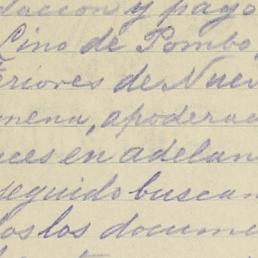 dacción y pago
Lino de Pombo,
eriores de Nuev
mena, apoderad
nces en adelan
seguido buscan
os los docume